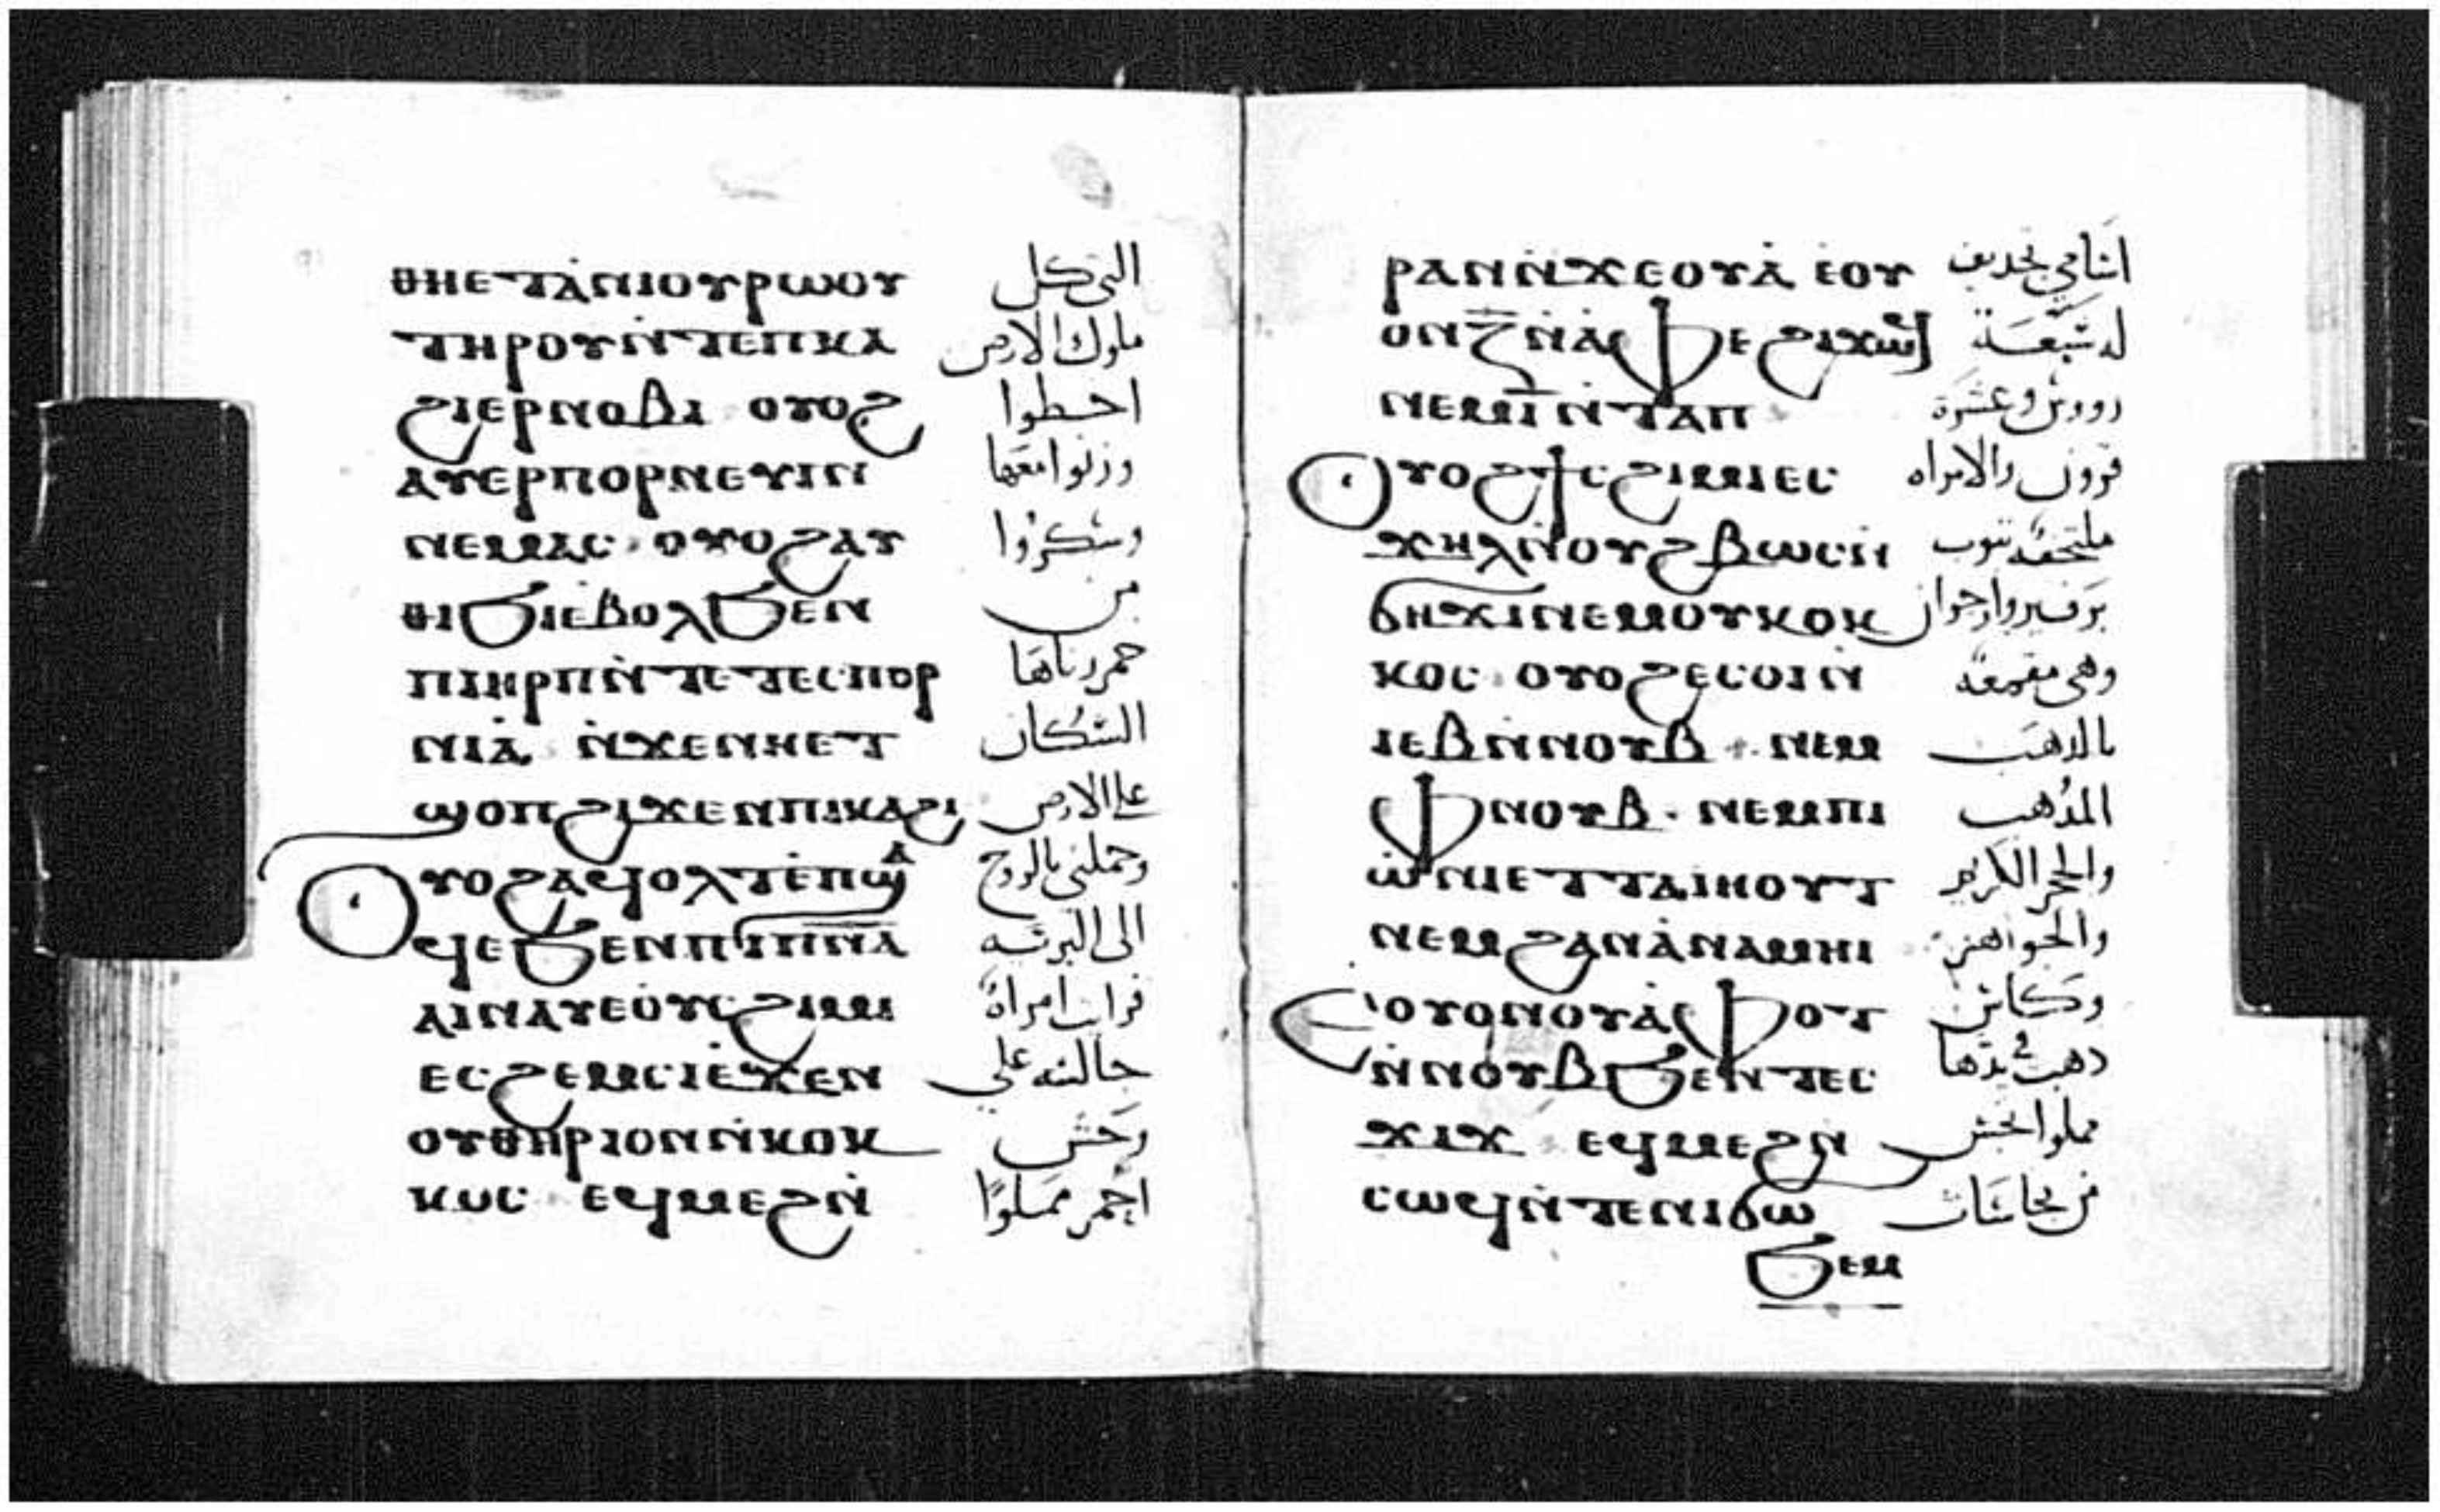 ⲑⲏⲉⲧⲁ̀ⲛⲓⲟⲩⲣⲱⲟⲩ التى كل
ⲧⲏⲣⲟⲩⲛ̀ⲧⲉⲡⲕⲁ ملوك الارض
ϩⲓⲉⲣⲛⲟⲃⲓ ⲟⲩⲟϩ اخطوا
ⲁⲩⲉⲣⲡⲟⲣⲛⲉⲩⲓⲛ وزنوا معها
ⲛⲉⲙⲁⲥ ⲟⲩⲟϩⲁⲩ وسكروا
ⲑⲓϧⲓⲉ̀ⲃⲟⲗϧⲉⲛ من
ⲡⲓⲏⲣⲡⲛ̀ⲧⲉⲧⲉⲥⲡⲟⲣ خمر زناها
ⲛⲓⲁ̀ ⲛ̀ϫⲉⲛⲏⲉⲧ السكان
ϣⲟⲡϩⲓϫⲉⲛⲡⲓⲕⲁϩⲓ على الارض
ⲟⲩⲟϩⲁϥⲟⲗⲧⲉ̀ⲡϣⲁ وحملنى بالروح
ϥⲉϧⲉⲛⲡⲓⲡ̅ⲛ̅ⲁ̅ الى البريه
ⲁⲓⲛⲁⲩⲉⲟ̀ⲩⲥϩⲓⲙⲓ فرات امراة
ⲉⲥϩⲉⲙⲥⲓⲉ̀ϫⲉⲛ جالسه على
ⲟⲩⲑⲏⲣⲓⲟⲛⲛ̀ⲕⲟⲕ وحش
ⲕⲟⲥ ⲉϥⲙⲉϩⲛ̀ احمر مملوا
ⲣⲁⲛⲛ̀ϫⲉⲟⲩⲁ̀ ⲉ̀ⲟⲩ اسامى تجديف
ⲟⲛⲍ̅ⲛ̀ⲁ̀ⲫⲉ ϩⲓϫⲱϥ له سبعة
ⲛⲉⲙⲓ̅ⲛ̀ⲧⲁⲡ رووس وعشرة
ⲟⲩⲟϩϯⲥϩⲓⲙⲓⲉⲥ قرون والامراه
ϫⲏⲗⲛ̀ⲟⲩϩⲃⲱⲥⲛ̀ ملتحفه بثوب
ϭⲏϫⲓⲛⲉⲙⲟⲩⲕⲟⲕ برفير وارجوان
ⲕⲟⲥ ⲟⲩⲟϩⲉⲥⲟⲓⲛ̀ وهى مقمعة
ⲓⲉⲃⲛ̀ⲛⲟⲩⲃ ⲛⲉⲙ بالدهب
ⲫⲛⲟⲩⲃ ⲛⲉⲙⲡⲓ المدهب
ⲱ̀ⲛⲓⲉⲧⲧⲁⲓⲏⲟⲩⲧ والحجر الكريم
ⲛⲉⲙϩⲁⲛⲁ̀ⲛⲁⲙⲏⲓ والجواهر
ⲉⲟⲩⲟⲛⲟⲩⲁ̀ⲫⲟⲧ وكاس
ⲛ̀ⲛⲟⲩⲃϧⲉⲛⲧⲉⲥ دهب فى يدها
ϫⲓϫ ⲉϥⲙⲉϩⲛ̀ مملوا نجس
ⲥⲱϥⲛ̀ⲧⲉⲛⲓϭⲱ من نجاسات
ϧⲉⲙ